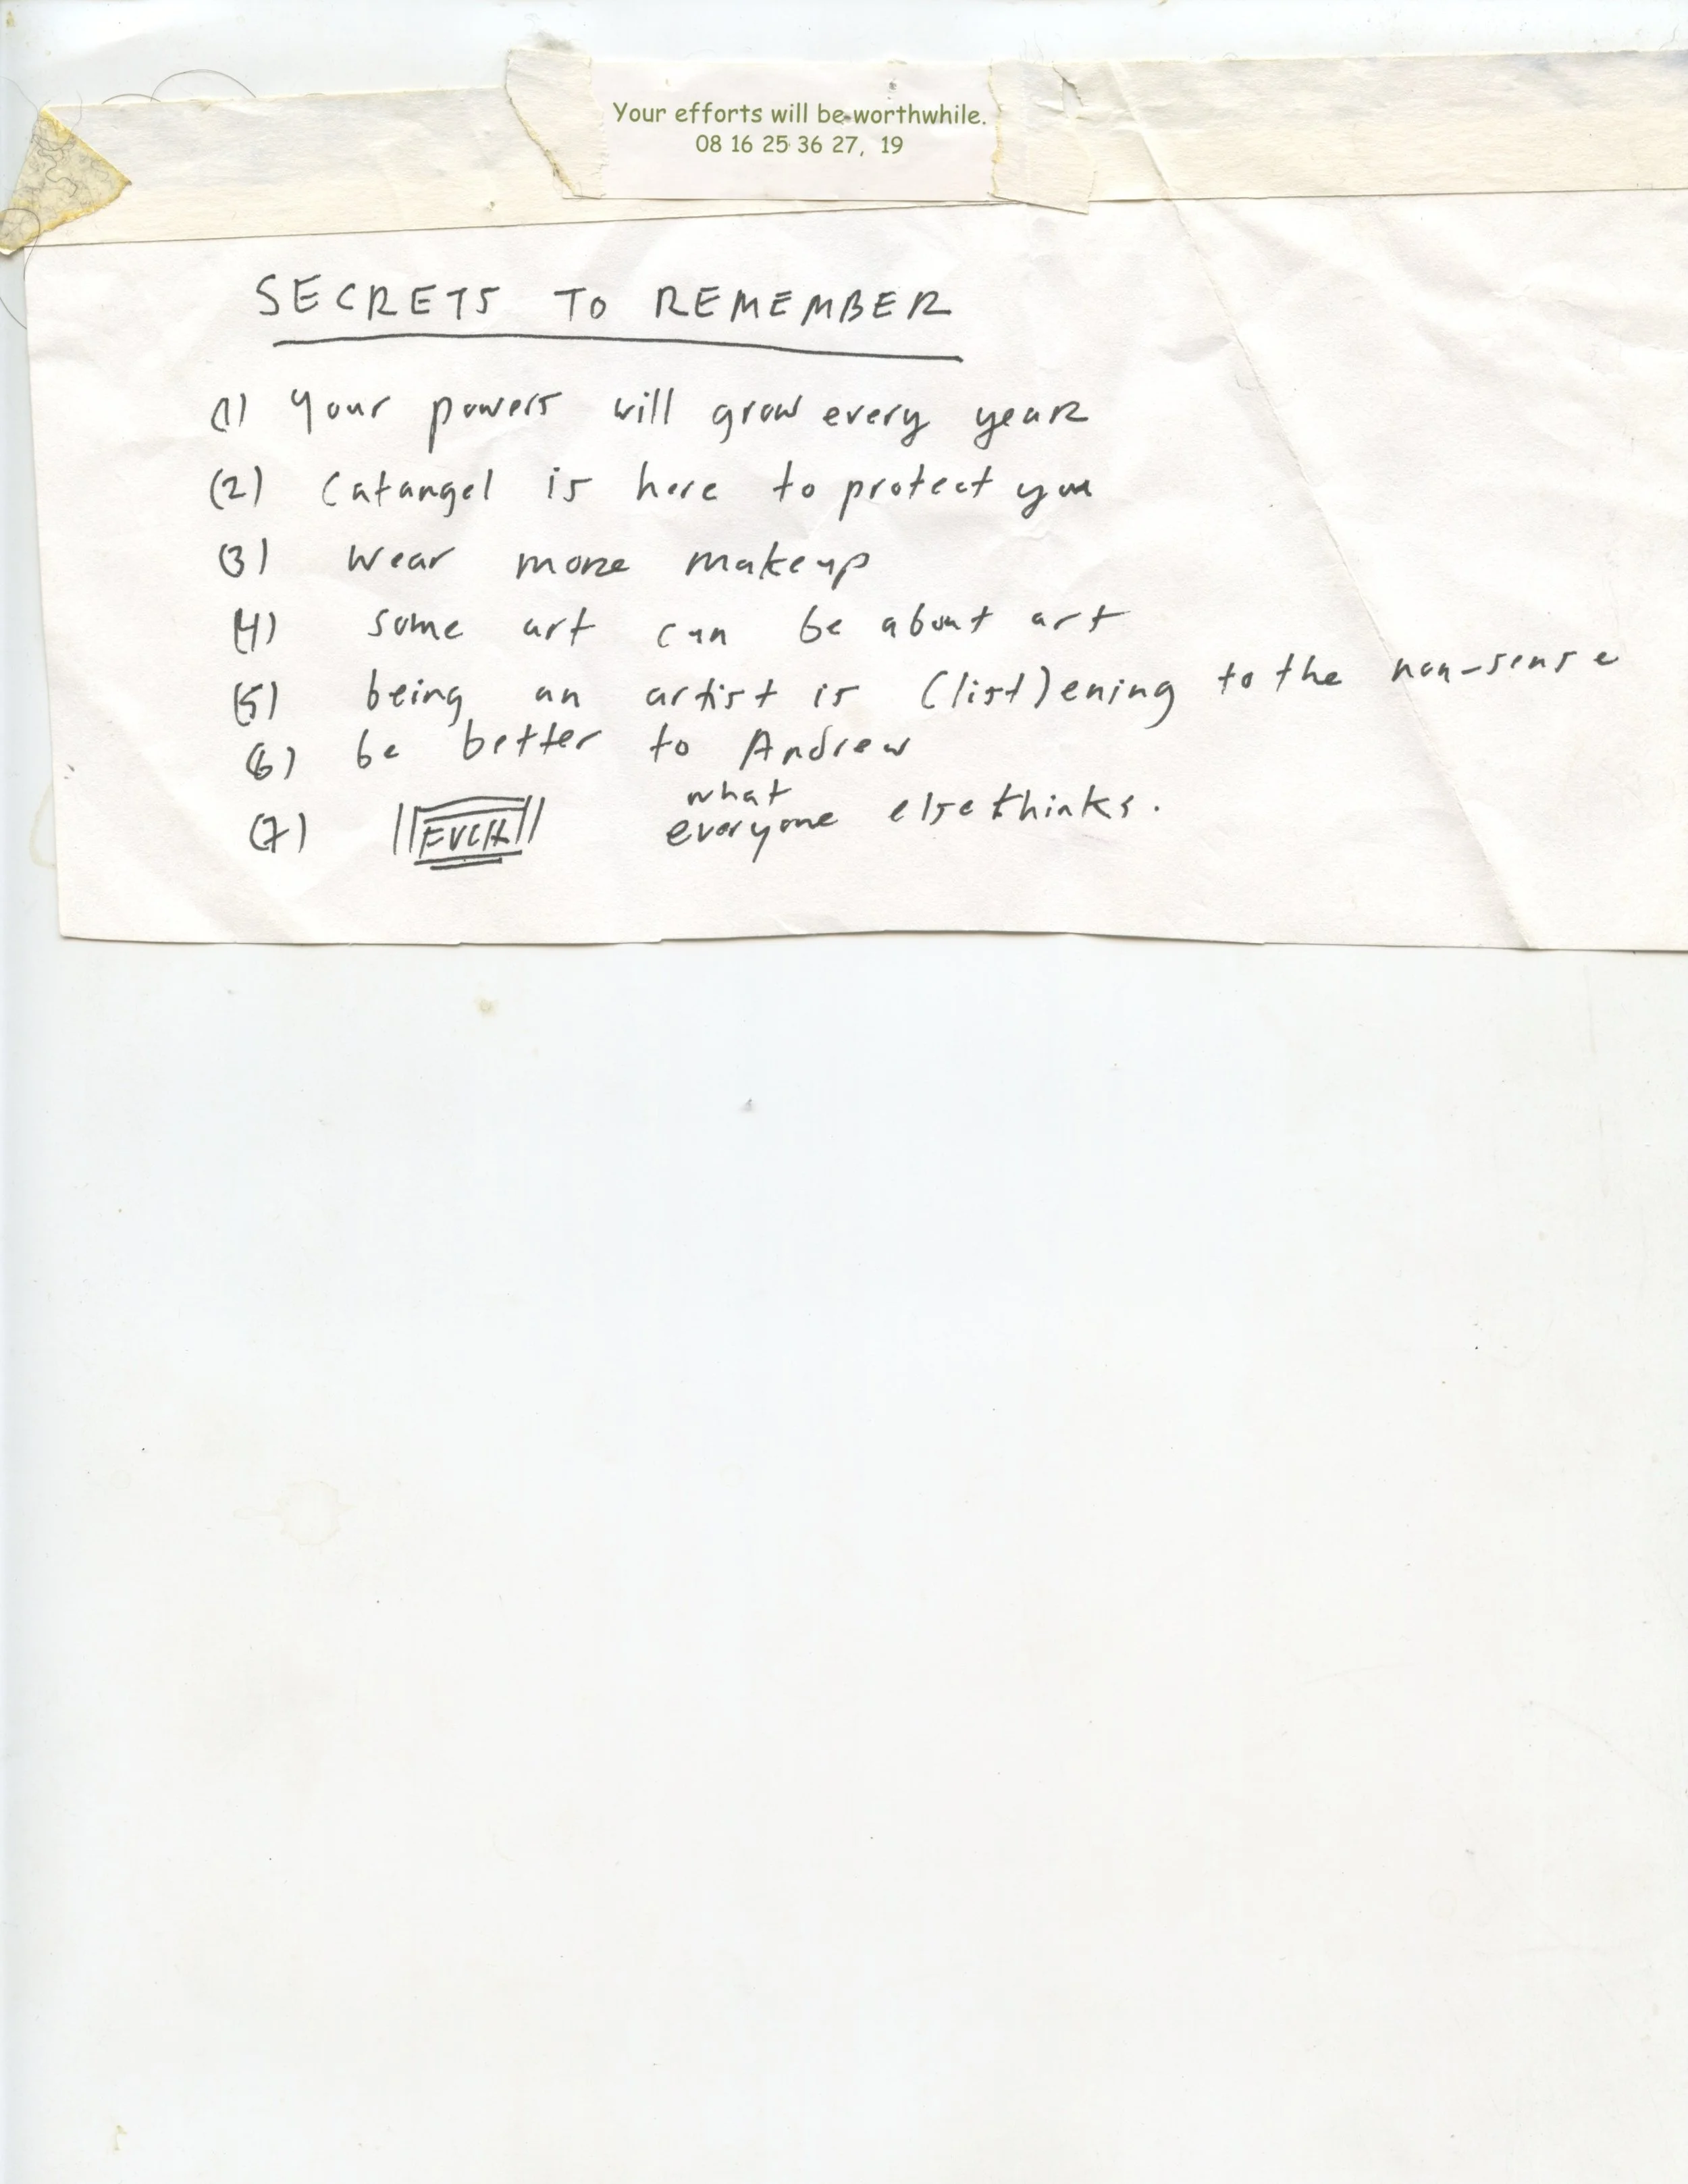 Your efforts will be worthwhile.
08 16 25 36 27, 19
SECRETS TO REMEMBER
(1) Your powers will grow every year
(2) Catangel is here to protect you
(3) Wear more makeup
(4) some art can be about art
(5) being an artist is (list)ening to the non-sense
(6) be better to Andrew
(7) FUCK what
everyone else thinks.